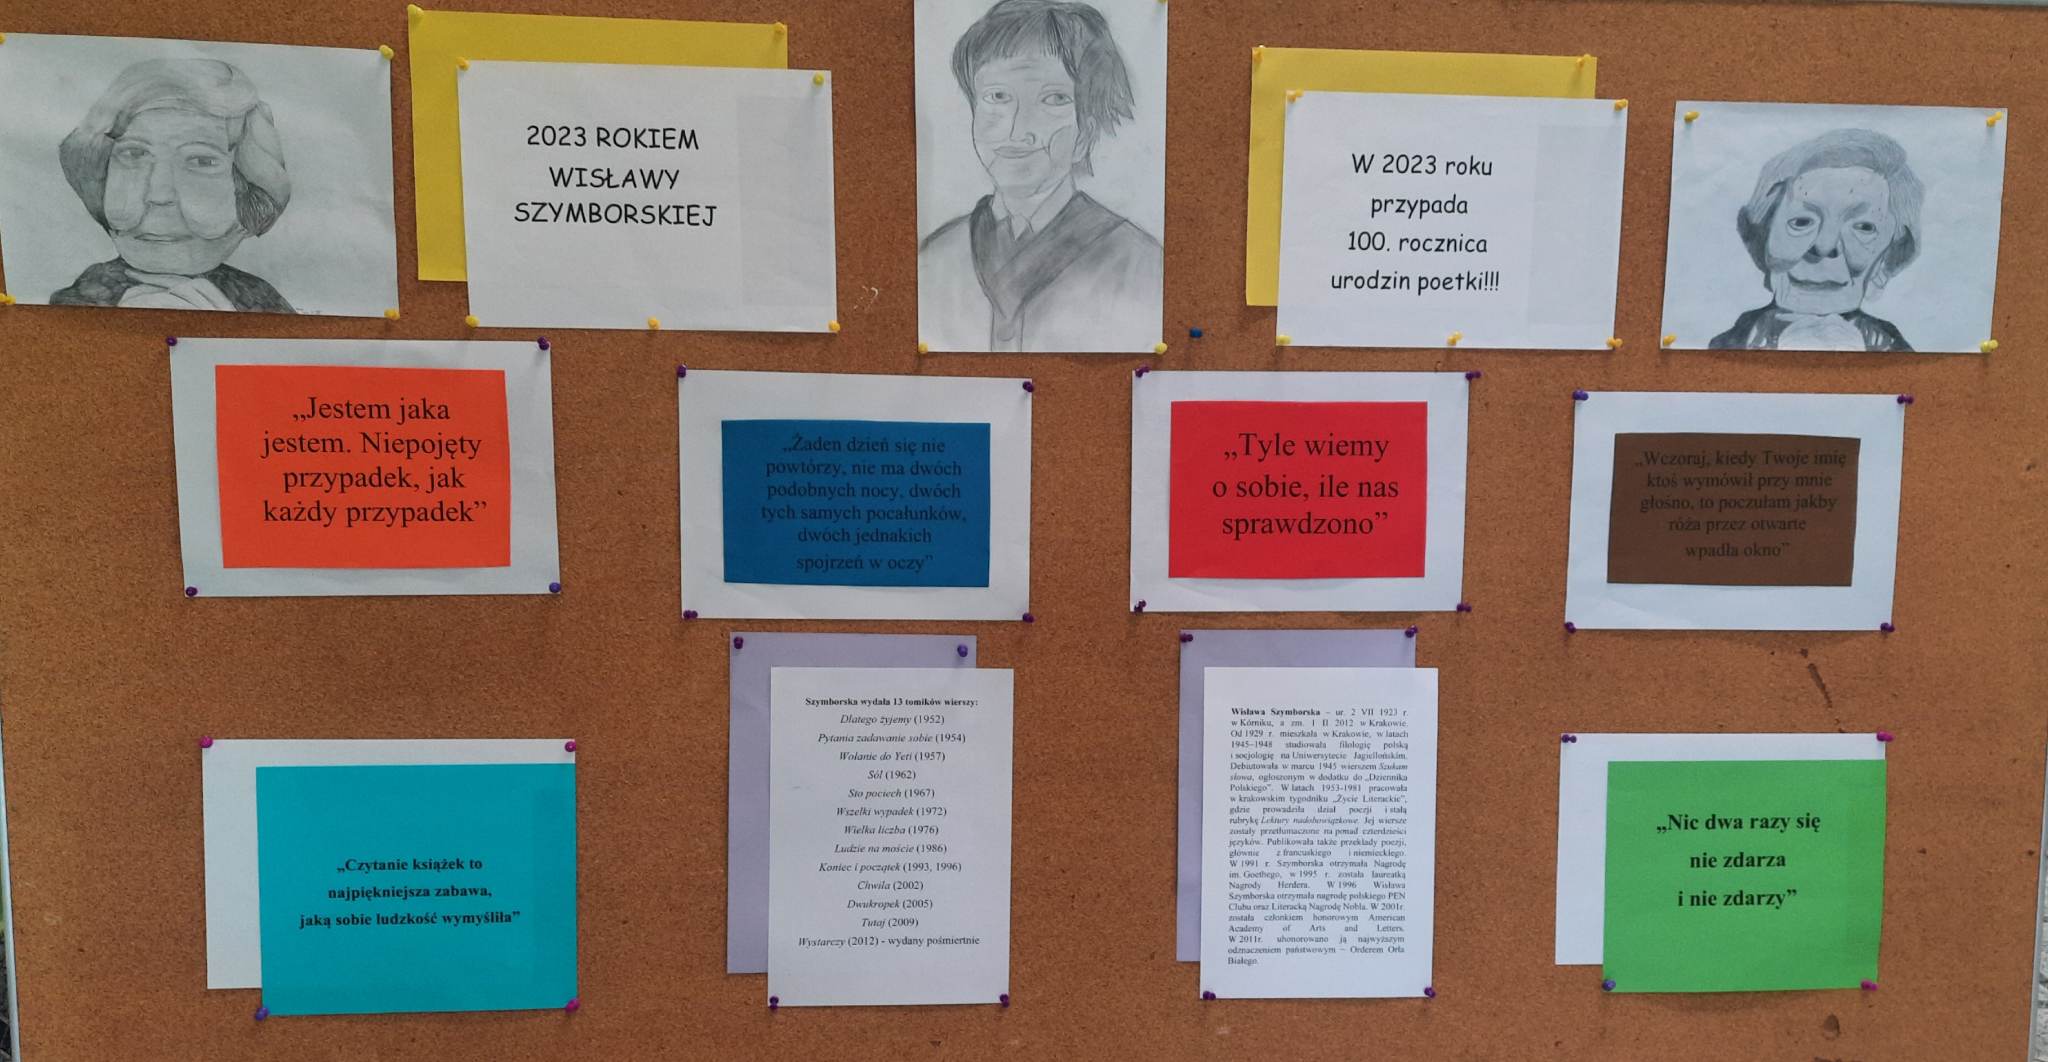 2023 ROKIEM
WISŁAWY
SZYMBORSKIEJ
W 2023 roku
przypada
100. rocznica
urodzin poetki!!!
„Jestem jaka
jestem. Niepojęty
przypadek, jak
każdy przypadek”
„Żaden dzień się nie
powtórzy, nie ma dwóch
podobnych nocy, dwóch
tych samych pocałunków,
dwóch jednakich
spojrzeń w oczy”
„Tyle wiemy
o sobie, ile nas
sprawdzono”
„Wczoraj, kiedy Twoje imię
ktoś wymówił przy mnie
głośno, to poczułam jakby
róża przez otwarte
wpadła okno”
„Czytanie książek to
najpiękniejsza zabawa,
jaką sobie ludzkość wymyśliła”
Szymborska wydała 13 tomików wierszy:
Dlatego żyjemy (1952)
Pytania zadawanie sobie (1954)
Wołanie do Yeti (1957)
Sól (1962)
Sto pociech (1967)
Wszelki wypadek (1972)
Wielka liczba (1976)
Ludzie na moście (1986)
Koniec i początek (1993, 1996)
Chwila (2002)
Dwukropek (2005)
Tutaj (2009)
Wystarczy (2012) - wydany pośmiertnie
Wisława Szymborska – ur. 2 VII 1923 r.
w Kórniku, a zm. 1 II 2012 w Krakowie.
Od 1929 r. mieszkała w Krakowie, w latach
1945–1948 studiowała filologię polską
i socjologię na Uniwersytecie Jagiellońskim.
Debiutowała w marcu 1945 wierszem Szukam
słowa, ogłoszonym w dodatku do „Dziennika
Polskiego”. W latach 1953-1981 pracowała
w krakowskim tygodniku „Życie Literackie”,
gdzie prowadziła dział poezji i stałą
rubrykę Lektury nadobowiązkowe. Jej wiersze
zostały przetłumaczone na ponad czterdzieści
języków. Publikowała także przekłady poezji,
głównie z francuskiego i niemieckiego.
W 1991 r. Szymborska otrzymała Nagrodę
im. Goethego, w 1995 r. została laureatką
Nagrody Herdera. W 1996 Wisława
Szymborska otrzymała nagrodę polskiego PEN
Clubu oraz Literacką Nagrodę Nobla. W 2001r.
została członkiem honorowym American
Academy of Arts and Letters.
W 2011r. uhonorowano ją najwyższym
odznaczeniem państwowym – Orderem Orła
Białego.
„Nic dwa razy się
nie zdarza
i nie zdarzy”